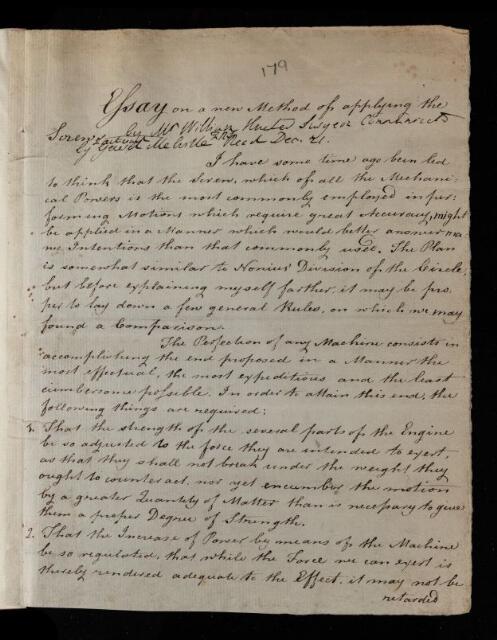 179
Essay on a new Method of applying the
Screw by Mr William Hunter Surgeon
Read Dec. 21.
I have some time ago been led
to think that the Screw, which of all the Mechani-
cal Powers is the most commonly employed in per-
forming Motions which require great Accuracy, might
be applied in a Manner which would better answer ma-
ny Intentions than that commonly used. The Plan
is somewhat similar to Nonius' Division of the Circle,
but before explaining myself farther, it may be pro-
per to lay down a few general Rules, on which we may
found a Comparison.
The Perfection of any Machine consists in
accomplishing the end proposed in a Manner the
most effectual, the most expeditious and the least
cumbersome possible. In order to attain this end, the
following things are required;
1. That the strength of the several parts of the Engine
be so adjusted to the force they are intended to exert,
as that they shall not break under the weight they
ought to counteract, nor yet encumber the motion
by a greater Quantity of Matter than is necessary to give
them a proper Degree of Strength.
2. That the Increase of Power by means of the Machine
be so regulated, that while the Force we can exert is
thereby rendered adequate to the Effect, it may not be
retarded